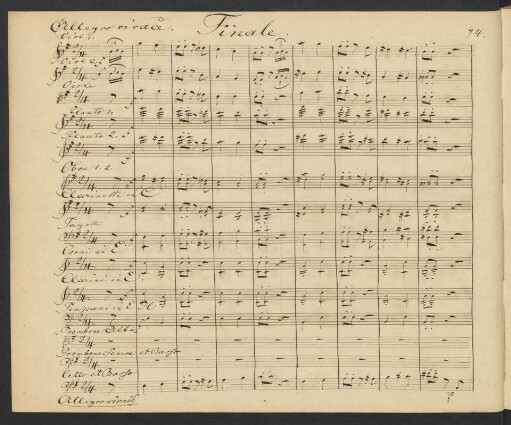 Allegro vivace. Finale. 74.
Viol 1.
Viol 2.
Viole
Flauto 1.
Flauto 2.
Oboe 1. 2
Clarinetti in C
Fagott
Corni in E
Clarini in E
Timpani in E. H.
Trombone Alto
Trombone Tenore et Basso
Cello et Basso
Allegro vivace